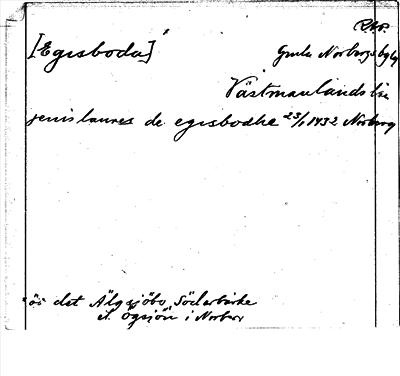 [Egisboda]
Gamla Norbergs bg by
Västmanlands län
jenis laures de egisbodhe 23/1 1432 Norberg
det Älgsjöbo, Söderbärke
el. Ögsjön i Norberg